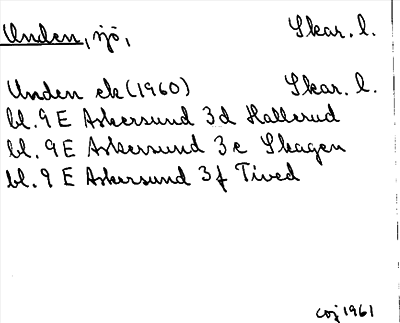 Unden, sjö, Skar. l.
Unden ek (1960) Skar. l.
bl. 9 E Askersund 3d Hallerud
bl. 9 E Askersund 3e Skagen
bl. 9 E Askersund 3f Tived
1961